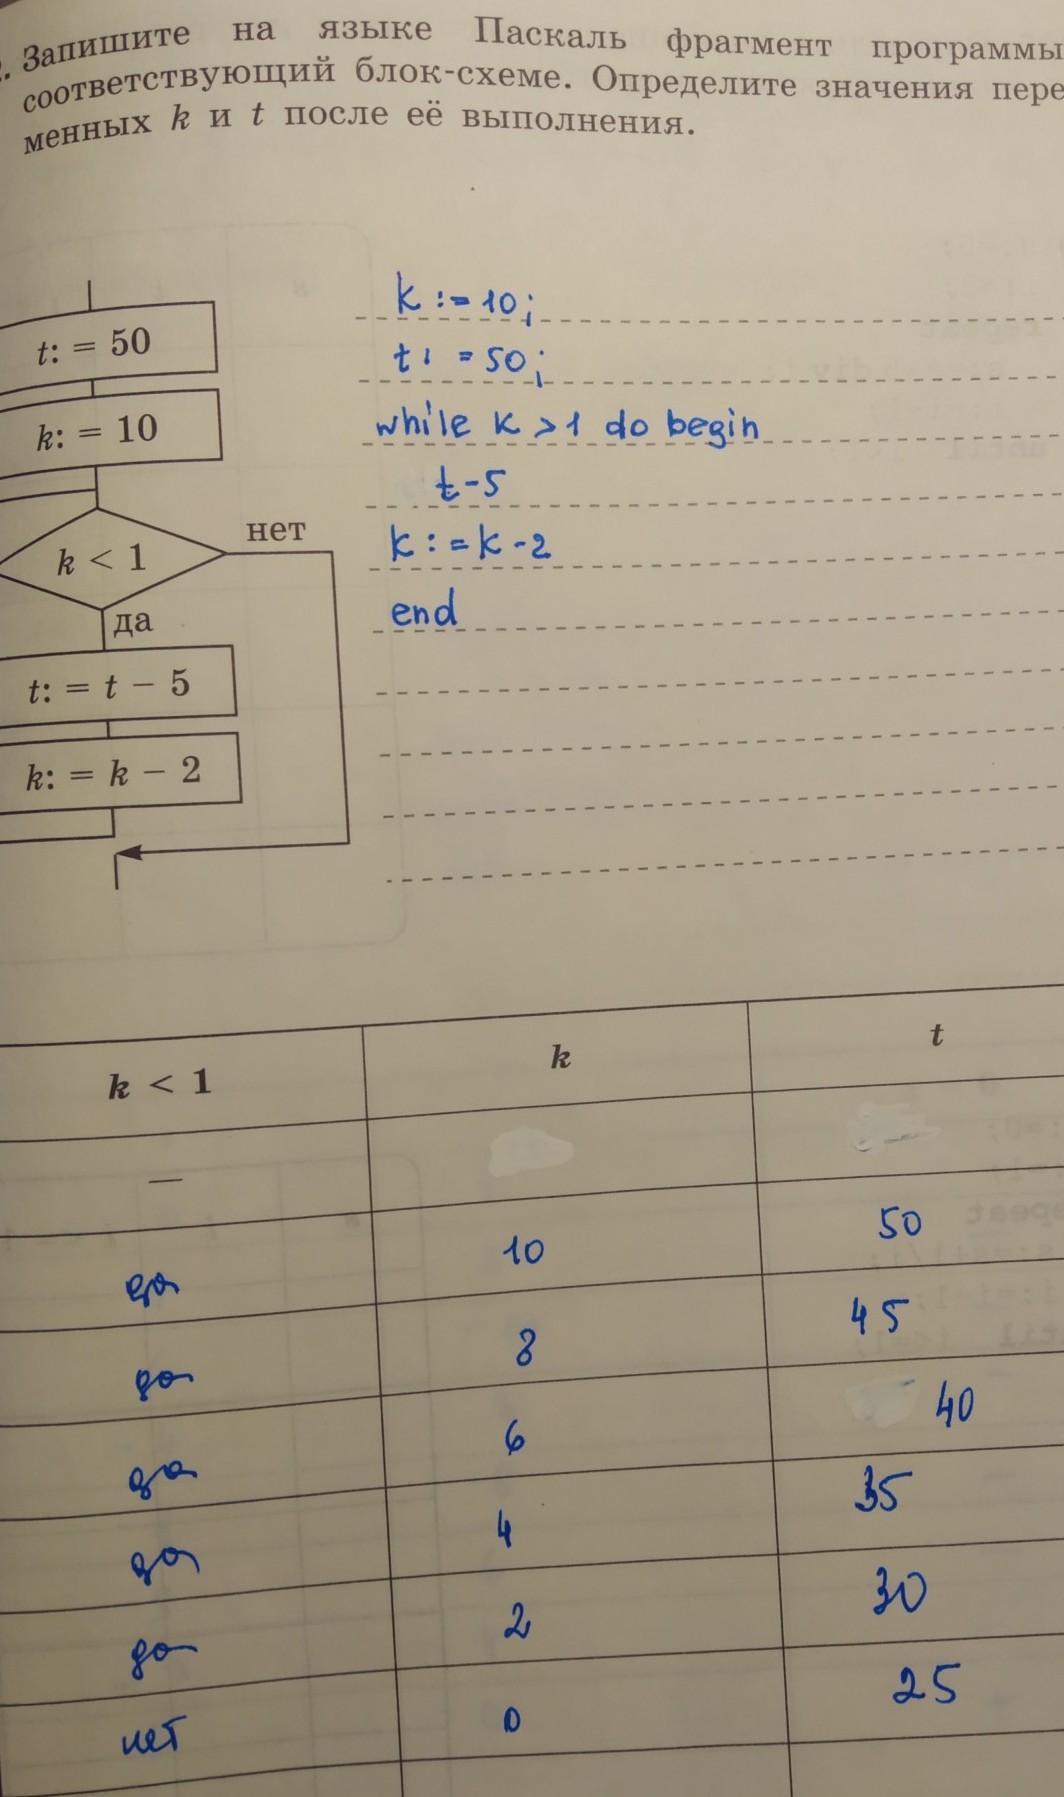 2. Запишите на языке Паскаль фрагмент программы
соответствующий блок-схеме. Определите значения пере
менных k и t после её выполнения.
t: = 50
k: = 10
k < 1
нет
да
t: = t – 5
k: = k – 2
k := 10;
t: = 50;
while k > 1 do begin
t-5
k: = k-2
end
k < 1
k
t
—
да
10
50
да
8
45
да
6
40
да
4
35
да
2
30
нет
0
25